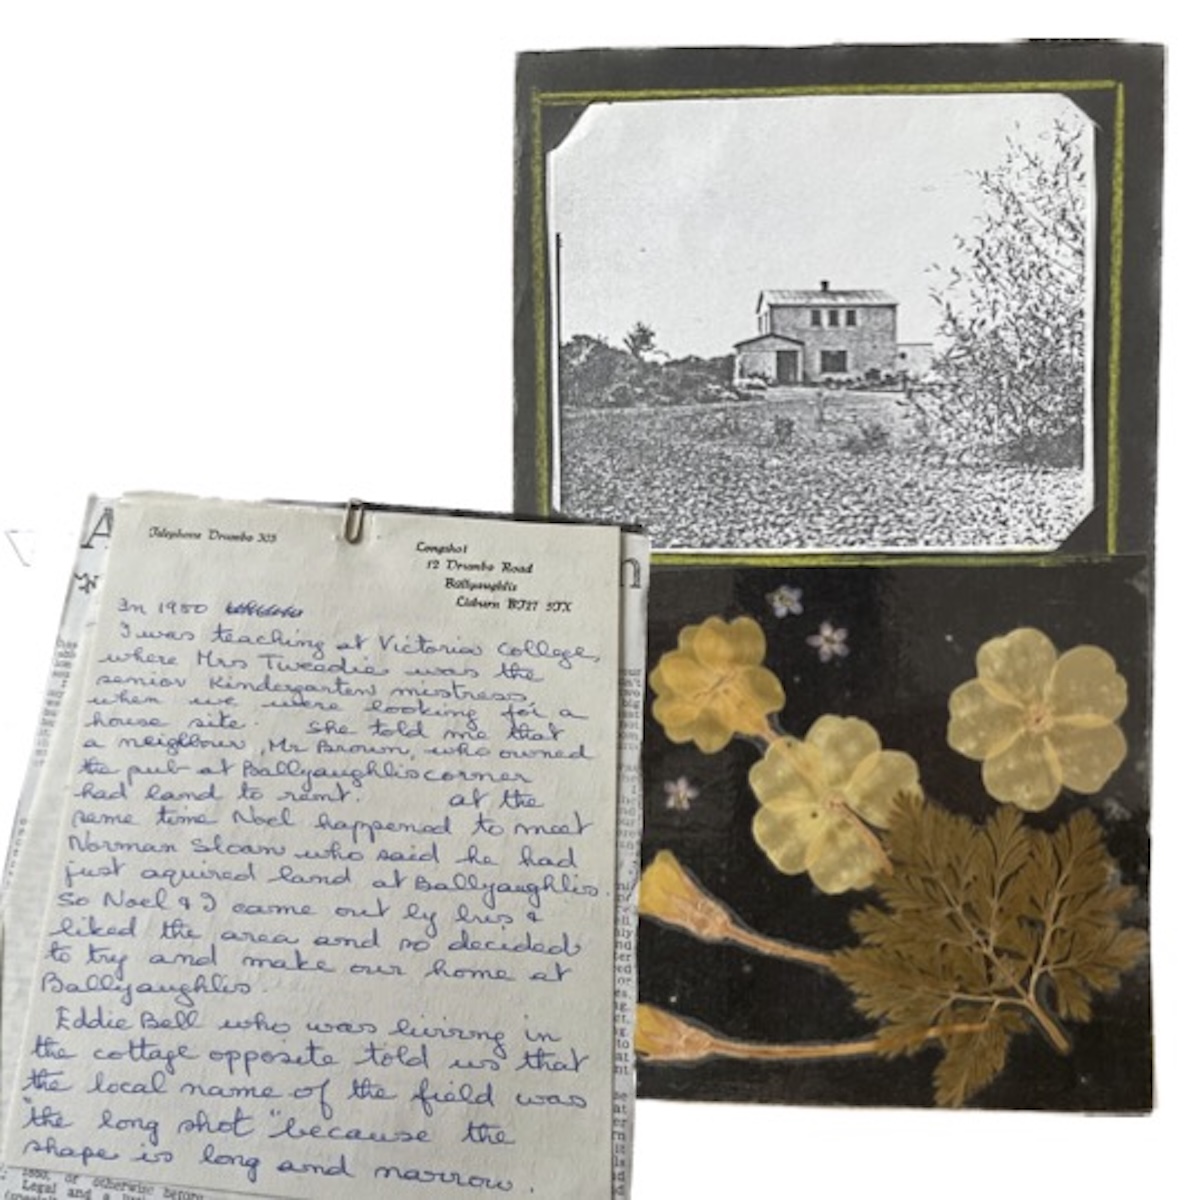 Telephone Drumbo 303
Longshot
12 Drumbo Road
Ballyaughlis
Lisburn BT27 5TX
In 1950
I was teaching at Victoria College,
where Mrs Tweedie was the
senior Kindergarten mistress,
when we were looking for a
house site. She told me that
a neighbour, Mr Brown, who owned
the pub at Ballyaughlis corner
had land to rent. at the
same time Noel happened to meet
Norman Sloan who said he had
just aquired land at Ballyaughlis.
So Noel & I came out by bus &
liked the area and so decided
to try and make our home at
Ballyaughlis.
Eddie Bell who was living in
the cottage opposite told us that
the local name of the field was
"the long shot" because the
shape is long and narrow.
or otherwise before
Legal and a